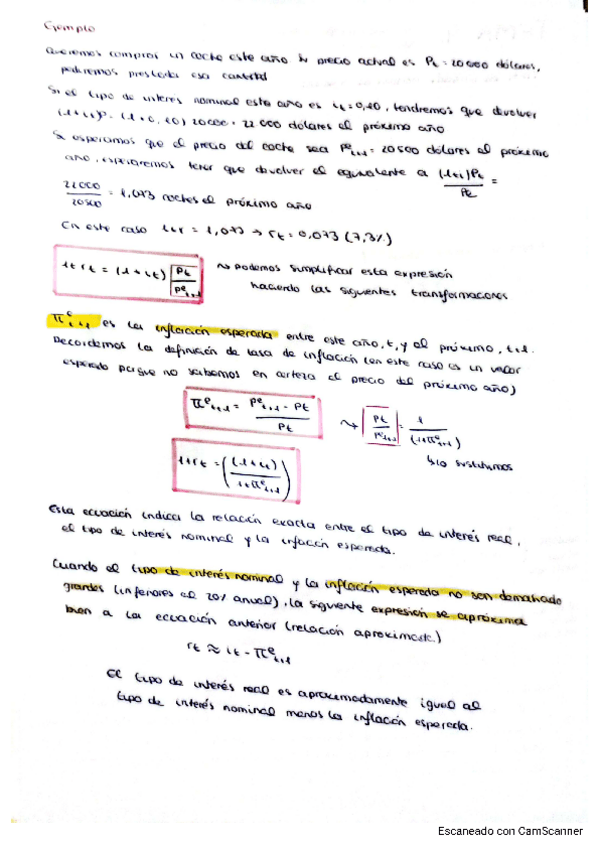 Ejemplo
Queremos comprar un coche este año. Su precio actual es Pt = 20 000 dólares,
pediremos prestada esa cantidad
Si el tipo de interés nominal este año es it = 0,10, tendremos que devolver
(1+it)Pt = (1+0,10) 20000 = 22 000 dólares el próximo año
Si esperamos que el precio del coche sea P^e_{t+1} = 20500 dólares el próximo
año, esperaremos tener que devolver el equivalente a (1+it)Pt / Pt =
22000 / 20500 = 1,073 coches el próximo año
En este caso 1+r = 1,073 → rt = 0,073 (7,3%)
1+rt = (1+it) Pt / P^e_{t+1} ↝ Podemos simplificar esta expresión
haciendo las siguientes transformaciones
π^e_{t+1} es la inflación esperada entre este año, t, y el próximo, t+1.
Recordemos la definición de tasa de inflación (en este caso es un valor
esperado porque no sabemos en certeza el precio del próximo año)
π^e_{t+1} = (P^e_{t+1} - Pt) / Pt ↝ Pt / P^e_{t+1} = 1 / (1+π^e_{t+1})
↳ lo sustituimos
1+rt = ((1+it) / (1+π^e_{t+1}))
Esta ecuación indica la relación exacta entre el tipo de interés real,
el tipo de interés nominal y la inflación esperada.
Cuando el tipo de interés nominal y la inflación esperada no son demasiado
grandes (inferiores al 20% anual), la siguiente expresión se aproxima
bien a la ecuación anterior (relación aproximada)
rt ≈ it - π^e_{t+1}
El tipo de interés real es aproximadamente igual al
tipo de interés nominal menos la inflación esperada.
Escaneado con CamScanner